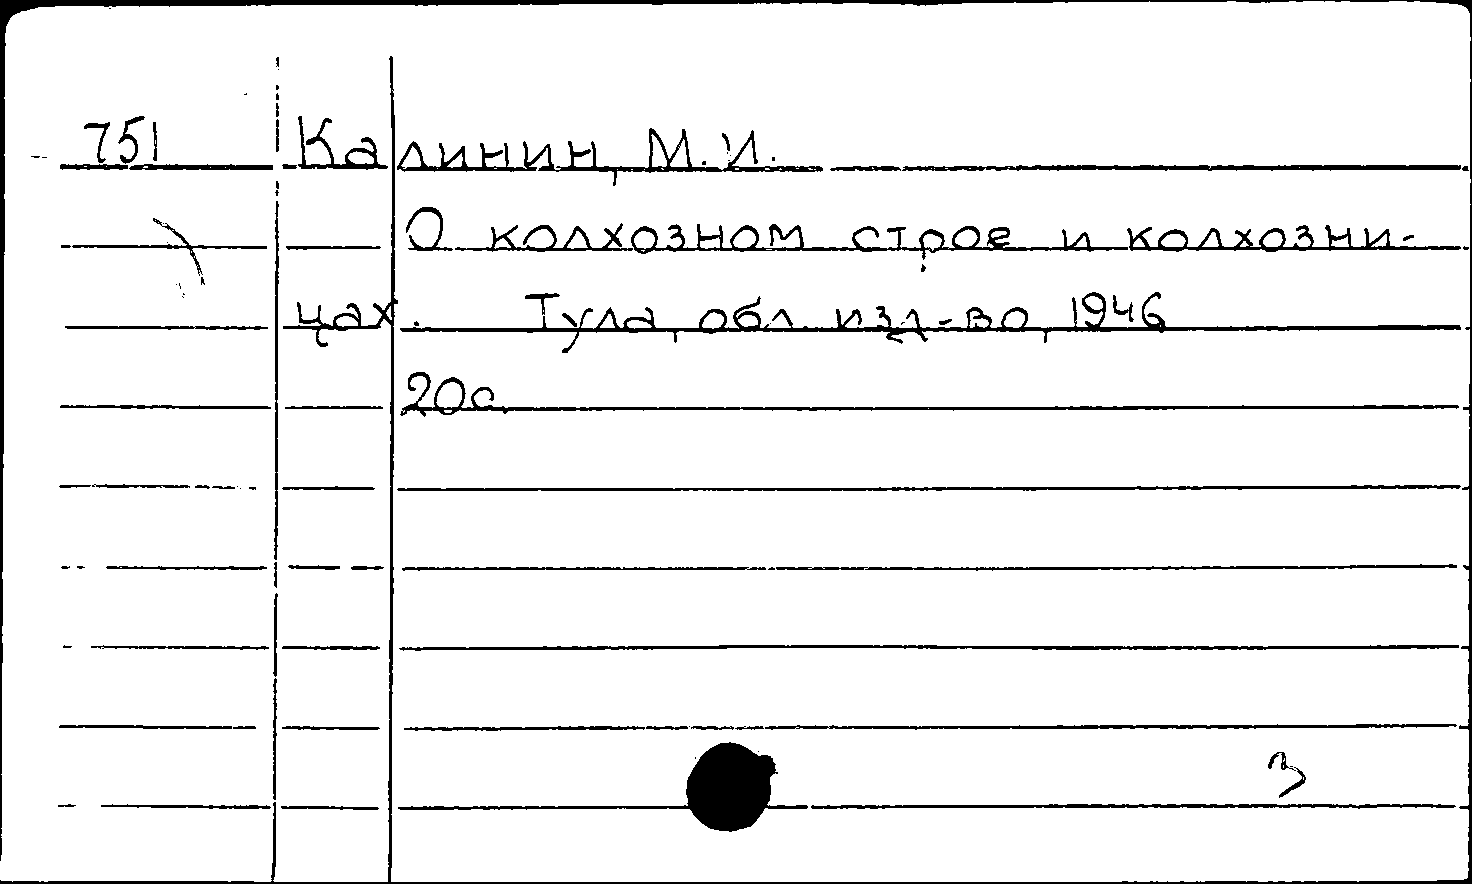 751 Калинин, М.И.
О колхозном строе и колхозни-
цах. Тула, обл. изд-во, 1946
20с.
3